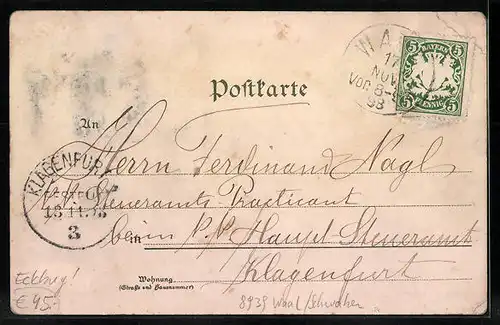 Postkarte
WAA
17
NOV
Vor. 8-
98
BAYERN
5 5
5 PFENNIG 5
An
Herrn Ferdinand Nagl
Steueramts Practicant
KLAGENFURT
BESTELLT
3
beim k.k. Haupt Steueramt
in
Klagenfurt
Wohnung
(Straße und Hausnummer)
€ 45.-
8939 Waal/Schwaben